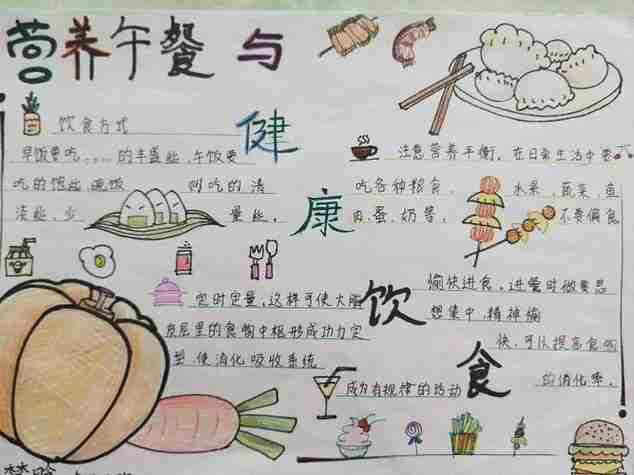 营养午餐与
健
康
饮
食
饮食方式
早饭要吃....的丰盛些,午饭要
吃的饱些,晚饭 则吃的清
淡些,少 量些。
注意营养平衡,在日常生活中要
吃各种粮食、 水果、蔬菜、鱼
肉、蛋、奶等, 不要偏食
定时定量,这样可使大脑
皮层里的食物中枢形成动力定
型,使消化吸收系统
成为有规律的活动
愉快进食,进餐时做要思
想集中,精神愉
快,可以提高食物
的消化率。